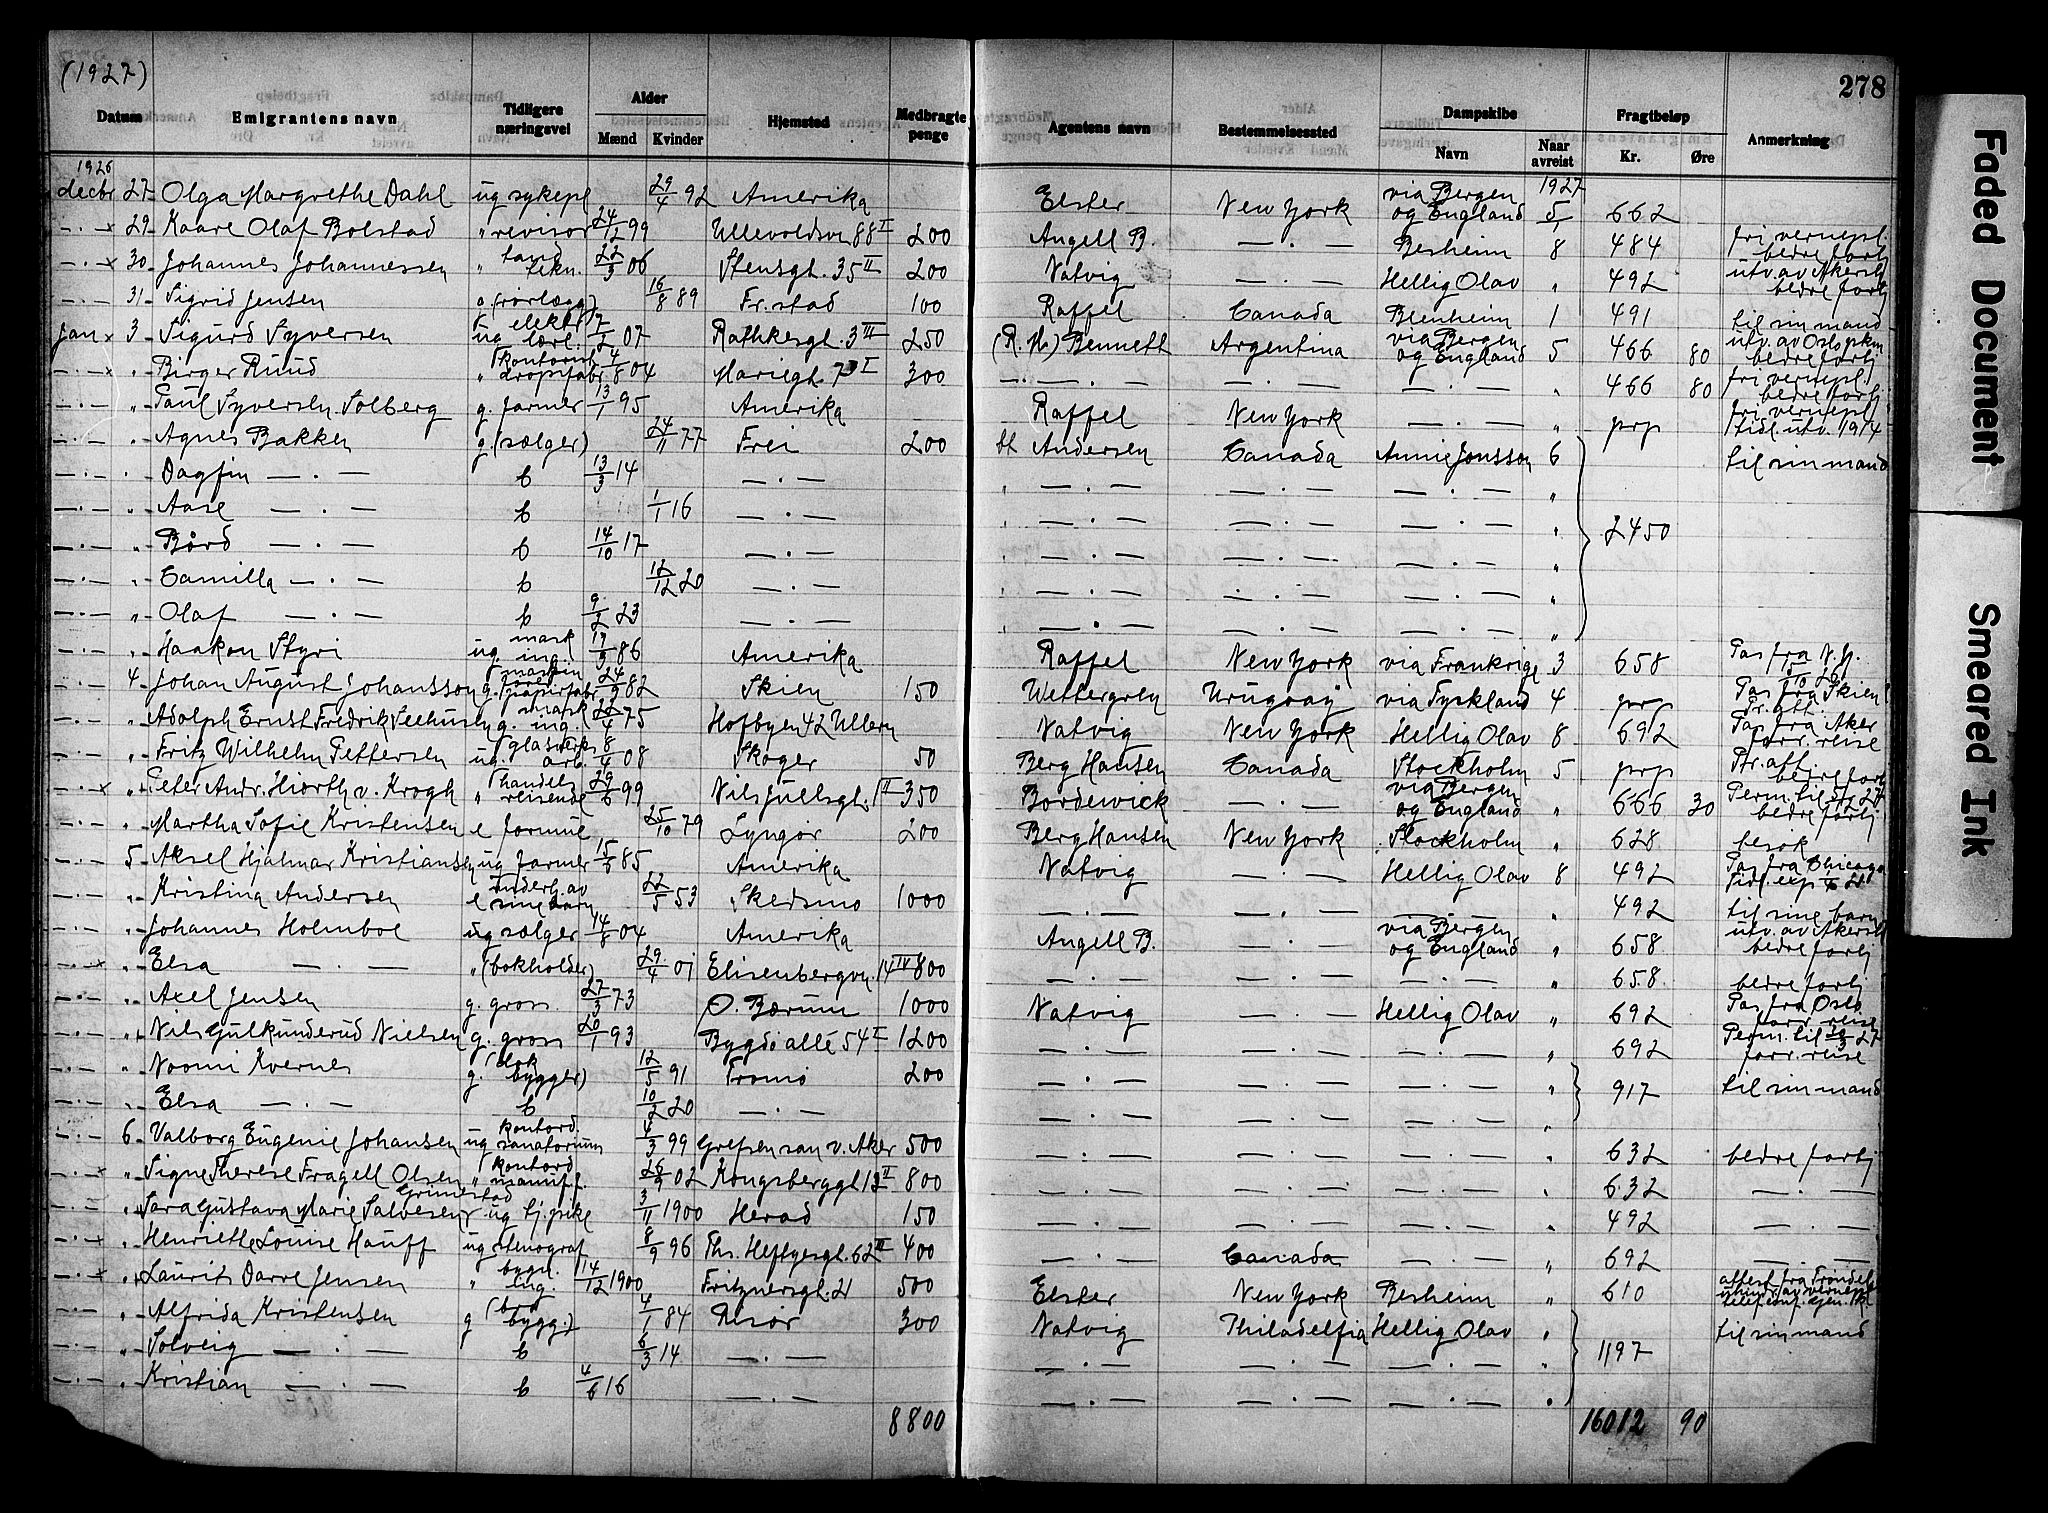 (1927)
278
Datum Emigrantens navn Tidligere næringsvei Alder Mænd Kvinder Hjemsted Medbragte penge Agentens navn Bestemmelsessted Dampskibe Navn Naar avreist Fragtbeløp Kr. Øre Anmerkning
1926 1927
decbr 27 Olga Margrethe Dahl ug sykepl 29/4 92 Amerika Elster New York via Bergen og England 5/1 662
— · — x 29 Kaare Olaf Bolstad " revisor 24/12 99 Ullevoldsv 88 II 200 Angell B. — · — Besheim 8 484 fri vernepl. bedre forhj
— · — x 30 Johannes Johannessen " tand tekn. 22/3 06 Stensgt. 35 II 200 Natvig — · — Hellig Olav " 492 utv. av Akersh bedre forhj
— · — 31 Sigrid Jensen g (rørlægg) 16/8 89 Fr.stad 100 Raffel Canada Blenheim 1 491 til sin mand
jan x 3 Sigurd Syversen ug elektr lærl. 7/2 07 Rathkesgt. 3 III 250 (R. N.) Bennett Argentina via Bergen og England 5 466 80 utv. av Oslo pkm bedre forhj
— · — x " Birger Ruud " kontorist dropsfabr 4/8 04 Mariegt. 7 I 300 — · — — · — — · — " 466 80 fri vernepl. bedre forhj
— · — " Paul Syversen Solberg g. farmer 13/1 95 Amerika Raffel New York — · — " prp fri vernepl tidl. utv. 1914
— · — " Agnes Bakken g. (sælger) 24/11 77 Frei 200 Andersen Canada Annie Jonsson 6 til sin mand
— · — " Dagfin — · — b 13/3 14 — · — " — · — — · — — · — "
— · — " Aase — · — b 1/1 16 — · — " — · — — · — — · — "
— · — " Bård — · — b 14/10 17 — · — " — · — — · — — · — " 2450
— · — " Camilla — · — b 12/12 20 — · — " — · — — · — — · — "
— · — " Olaf — · — b 9/2 23 — · — " — · — — · — — · — "
— · — " Haakon Styri ug. mask ing 86 Amerika Raffel New York via Frankrige 3 658 Pas fra N.Y.
— · — 4 Johan August Johansson g. maskin papirfabr 24/9 82 Skien 150 Wettergren Uruguay via Tyskland 4 prp Pas fra Skien Fr. att
— · — " Adolph Ernst Fredrik Seehusen g. mask ing 22/4 75 Hofbyen 42 Ullern Natvig New York Hellig Olav 8 692 Pas fra Aker forr. reise
— · — " Fritz Wilhelm Pettersen ug. glasverks arb. 8/4 08 Skoger 50 Berg Hansen Canada Stockholm 5 prp Fr. att bedre forhj
— · — x " Peter Andr. Hiorth v. Krogh " handels reisende 29/6 99 Nils Juelsgt. 1 II 350 Bordewick — · — via Bergen og England " 666 30 Perm. til bedre forhj
— · — " Martha Sofie Kristensen e formue 25/10 79 Lyngør 200 Berg Hansen New York Stockholm " 628 besøk
— · — 5 Aksel Hjalmar Kristiansen ug farmer 85 Amerika Natvig — · — Hellig Olav 8 492 Pas fra Chicago Tidl. exp
— · — " Kristina Andersen e underh. av sine barn 22/5 53 Skedsmo 1000 — · — — · — — · — " 492 til sine barn
— · — " Johannes Holmboe ug sælger 14/8 04 Amerika Angell B. — · — via Bergen og England " 658 utv. av Akersh bedre forhj
— · — x " Elsa — · — " (bokholder) 29/4 01 Elisenbergvn. 14 IV 800 — · — — · — — · — " 658 bedre forhj
— · — " Axel Jensen g. gross. 27/3 73 Ø. Bærum 1000 Natvig — · — Hellig Olav " 692 Pas fra Oslo forr. reise
— · — " Nils Gulkunderud Nielsen g. gross 20/1 93 Bygdø allé 54 I 1200 — · — — · — — · — " 692 Perm. til 27 forr. reise
— · — " Noomi Kvernes g. (bok bygger) 12/5 91 Tromø 200 — · — — · — — · — " 917 til sin mand
— · — " Elsa — · — b 10/2 20 — · — — · — — · — — · — "
— · — 6 Valborg Eugenie Johansen ug kontord. sanatorium 4/3 99 Grefsen san v. Aker 500 — · — — · — — · — " 632 bedre forhj
— · — x " Signe Therese Fragell Olsen " kontord manuf. 02 Kongsberggt 13 II 800 — · — — · — — · — " 632 — · —
Grimestad
— · — " Sara Gustava Marie Salvesen ug tj.pike 3/11 1900 Herad 150 — · — — · — — · — " 492 — · —
— · — x " Henriette Louise Hauff ug stenograf 8/9 96 Ths. Heftyesgt. 62 II 400 — · — Canada — · — " 692 — · —
— · — x " Laurits Darre Jensen " bygn. ing. 14/12 1900 Fritznersgt. 21 500 Elster New York Besheim " 610 attest fra Trøndel
— · — " Alfrida Kristensen g (bro bygg.) 4/1 84 Risør 300 Natvig Philadelfia Hellig Olav " til sin mand
— · — " Solveig — · — b 6/3 14 — · — — · — — · — — · — " 1197
— · — " Kristian — · — b 4/6 16 — · — — · — — · — — · — "
8800 16012 90
Faded Document
Smeared Ink